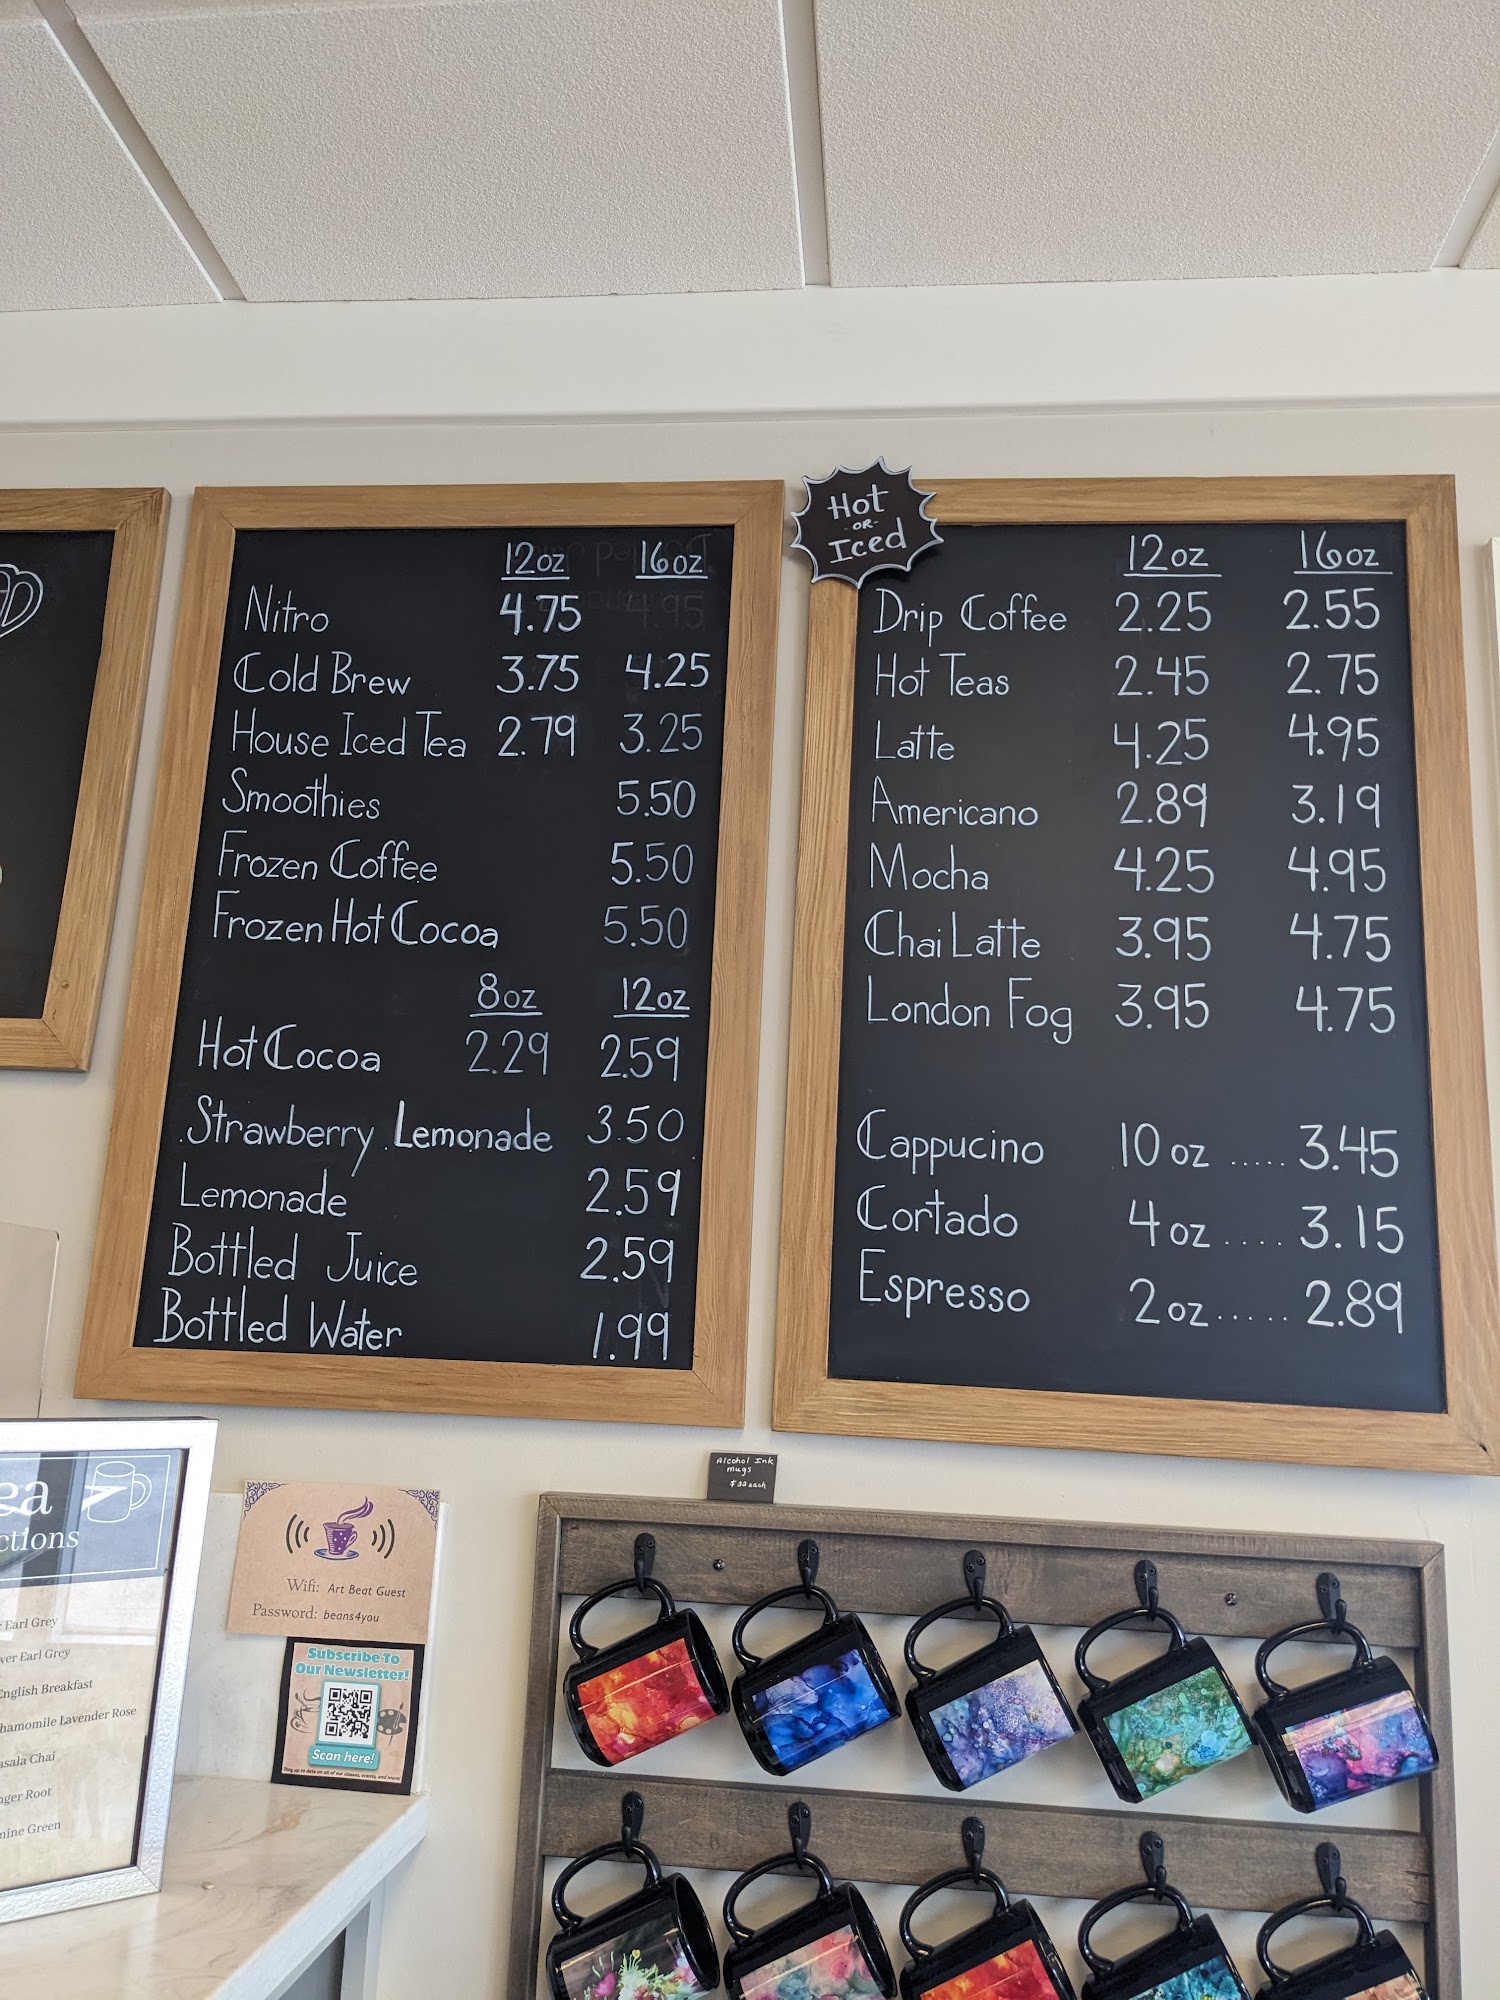 12oz 16oz
Nitro 4.75
Cold Brew 3.75 4.25
House Iced Tea 2.79 3.25
Smoothies 5.50
Frozen Coffee 5.50
Frozen Hot Cocoa 5.50
8oz 12oz
Hot Cocoa 2.29 2.59
Strawberry Lemonade 3.50
Lemonade 2.59
Bottled Juice 2.59
Bottled Water 1.99
Hot
-OR-
Iced
12oz 16oz
Drip Coffee 2.25 2.55
Hot Teas 2.45 2.75
Latte 4.25 4.95
Americano 2.89 3.19
Mocha 4.25 4.95
Chai Latte 3.95 4.75
London Fog 3.95 4.75
Cappucino 10 oz ..... 3.45
Cortado 4 oz .... 3.15
Espresso 2 oz ..... 2.89
Alcohol Ink
mugs
$22 each
Wifi: Art Beat Guest
Password: beans4you
Subscribe To
Our Newsletter!
Scan here!
Stay up to date on all of our classes, events, and more!
Earl Grey
Earl Grey
English Breakfast
Lavender Rose
Chai
Root
Green